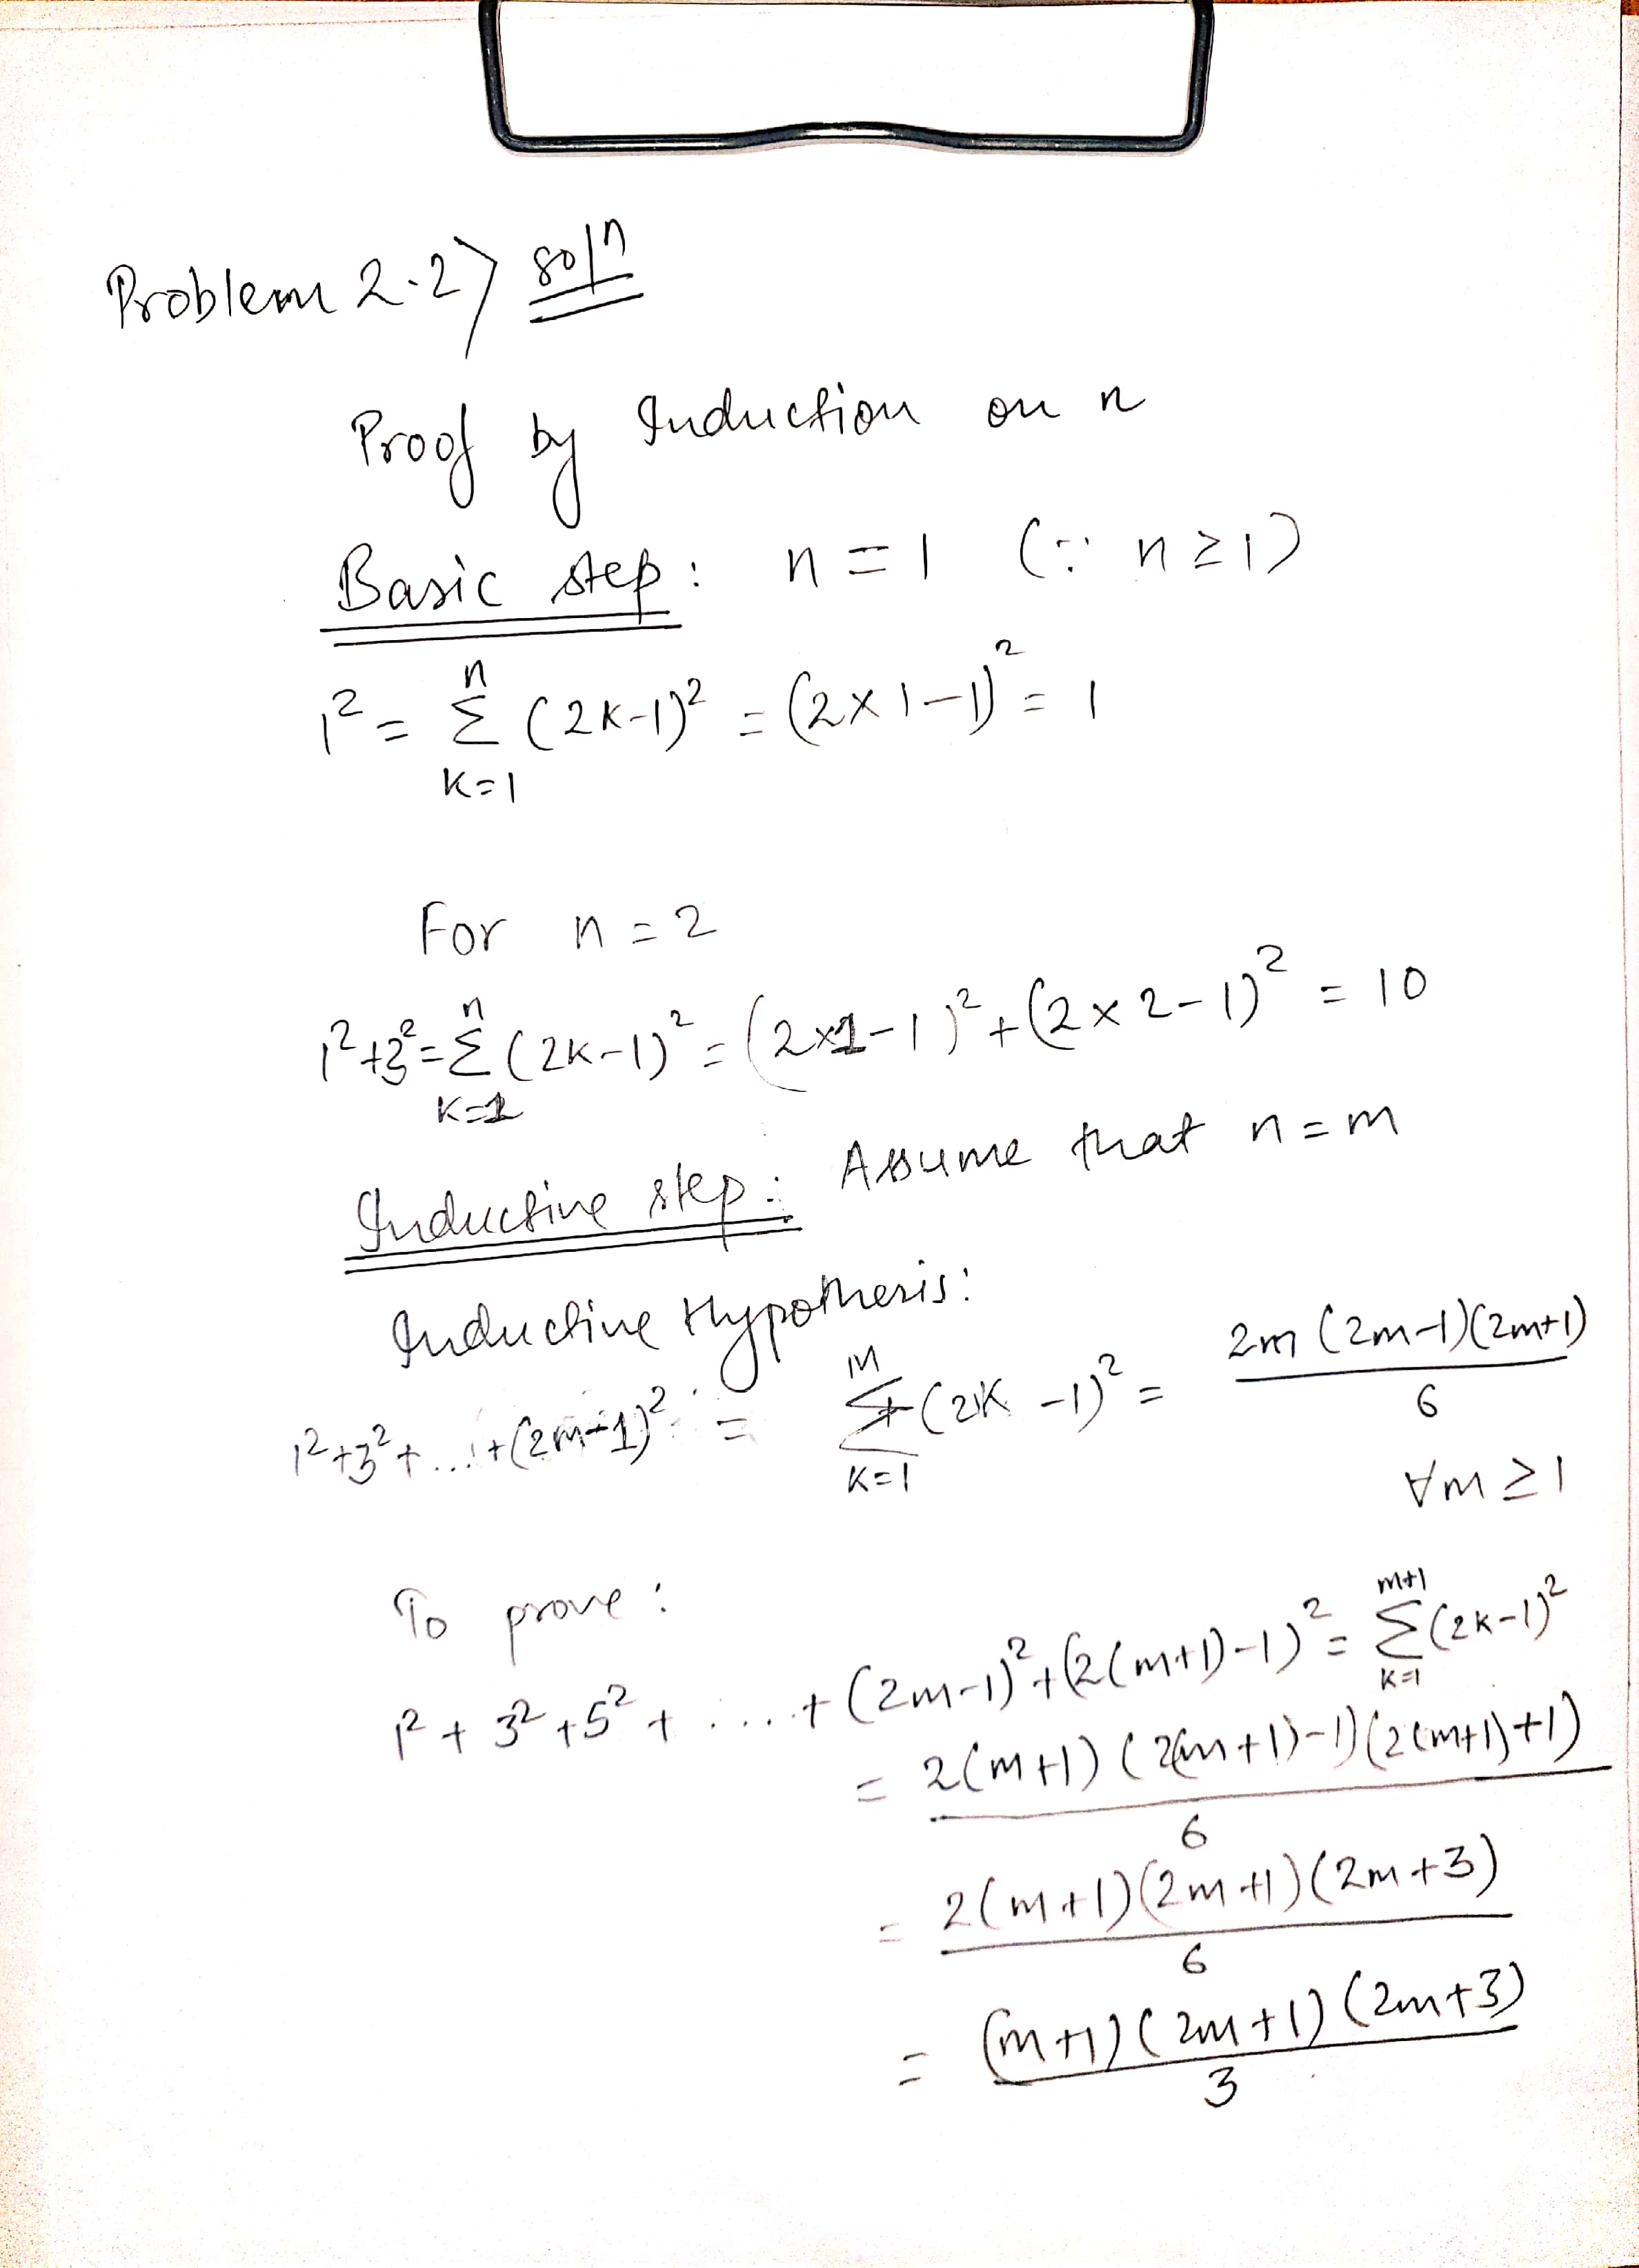 Problem 2.2) soln
Proof by Induction on n
Basic step: n = 1 (∵ n ≥ 1)
1² = Σ_{k=1}^{n} (2k-1)² = (2×1-1)² = 1
For n = 2
1²+3² = Σ_{k=1}^{n} (2k-1)² = (2×1-1)² + (2×2-1)² = 10
Inductive step: Assume that n = m
Inductive Hypothesis:
1²+3²+...+(2m-1)² = Σ_{k=1}^{m} (2k-1)² = 2m(2m-1)(2m+1)/6
∀m ≥ 1
To prove:
1² + 3² + 5² + .... + (2m-1)² + (2(m+1)-1)² = Σ_{k=1}^{m+1} (2k-1)²
= 2(m+1)(2(m+1)-1)(2(m+1)+1)/6
= 2(m+1)(2m+1)(2m+3)/6
= (m+1)(2m+1)(2m+3)/3